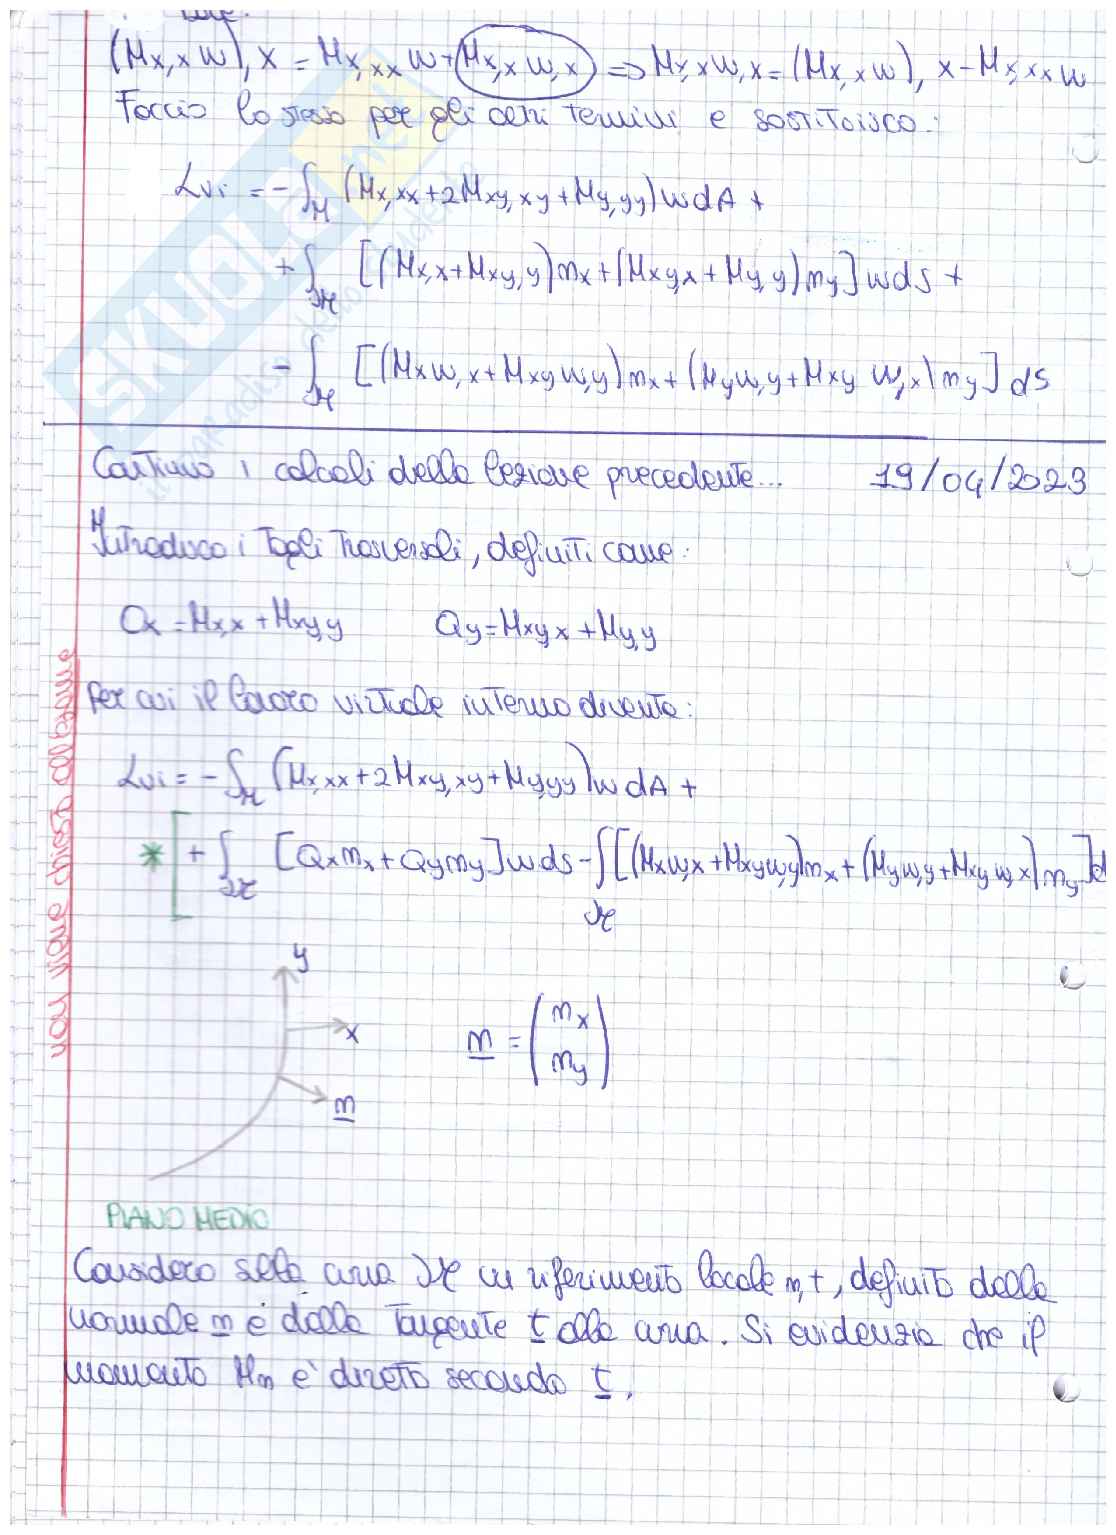 (Mx,x w),x = Mx,xx w + Mx,x w,x => Mx,x w,x = (Mx,x w),x - Mx,xx w
Faccio lo stesso per gli altri termini e sostituisco:
Lvi = - ∫M (Mx,xx + 2Mxy,xy + My,yy) w dA +
+ ∫∂M [(Mx,x + Mxy,y) nx + (Mxy,x + My,y) ny] w ds +
- ∫∂M [(Mx w,x + Mxy w,y) nx + (My w,y + Mxy w,x) ny] ds
Continuo i calcoli della lezione precedente... 19/04/2023
Introduco i Tagli Trasversali, definiti come:
Qx = Mx,x + Mxy,y Qy = Mxy,x + My,y
Per cui il lavoro virtuale interno diventa:
Lvi = - ∫M (Mx,xx + 2Mxy,xy + My,yy) w dA +
* [ + ∫∂M [Qx nx + Qy ny] w ds - ∫∂M [(Mx w,x + Mxy w,y) nx + (My w,y + Mxy w,x) ny] d
non viene chiesto all'esame
y
x
n
n = (nx ny)
PIANO MEDIO
Considero sulla curva ∂M un riferimento locale n,t, definito dalla
normale n e dalla Tangente t alla curva. Si evidenzia che il
momento Mn è diretto secondo t.
SKUOLA.net